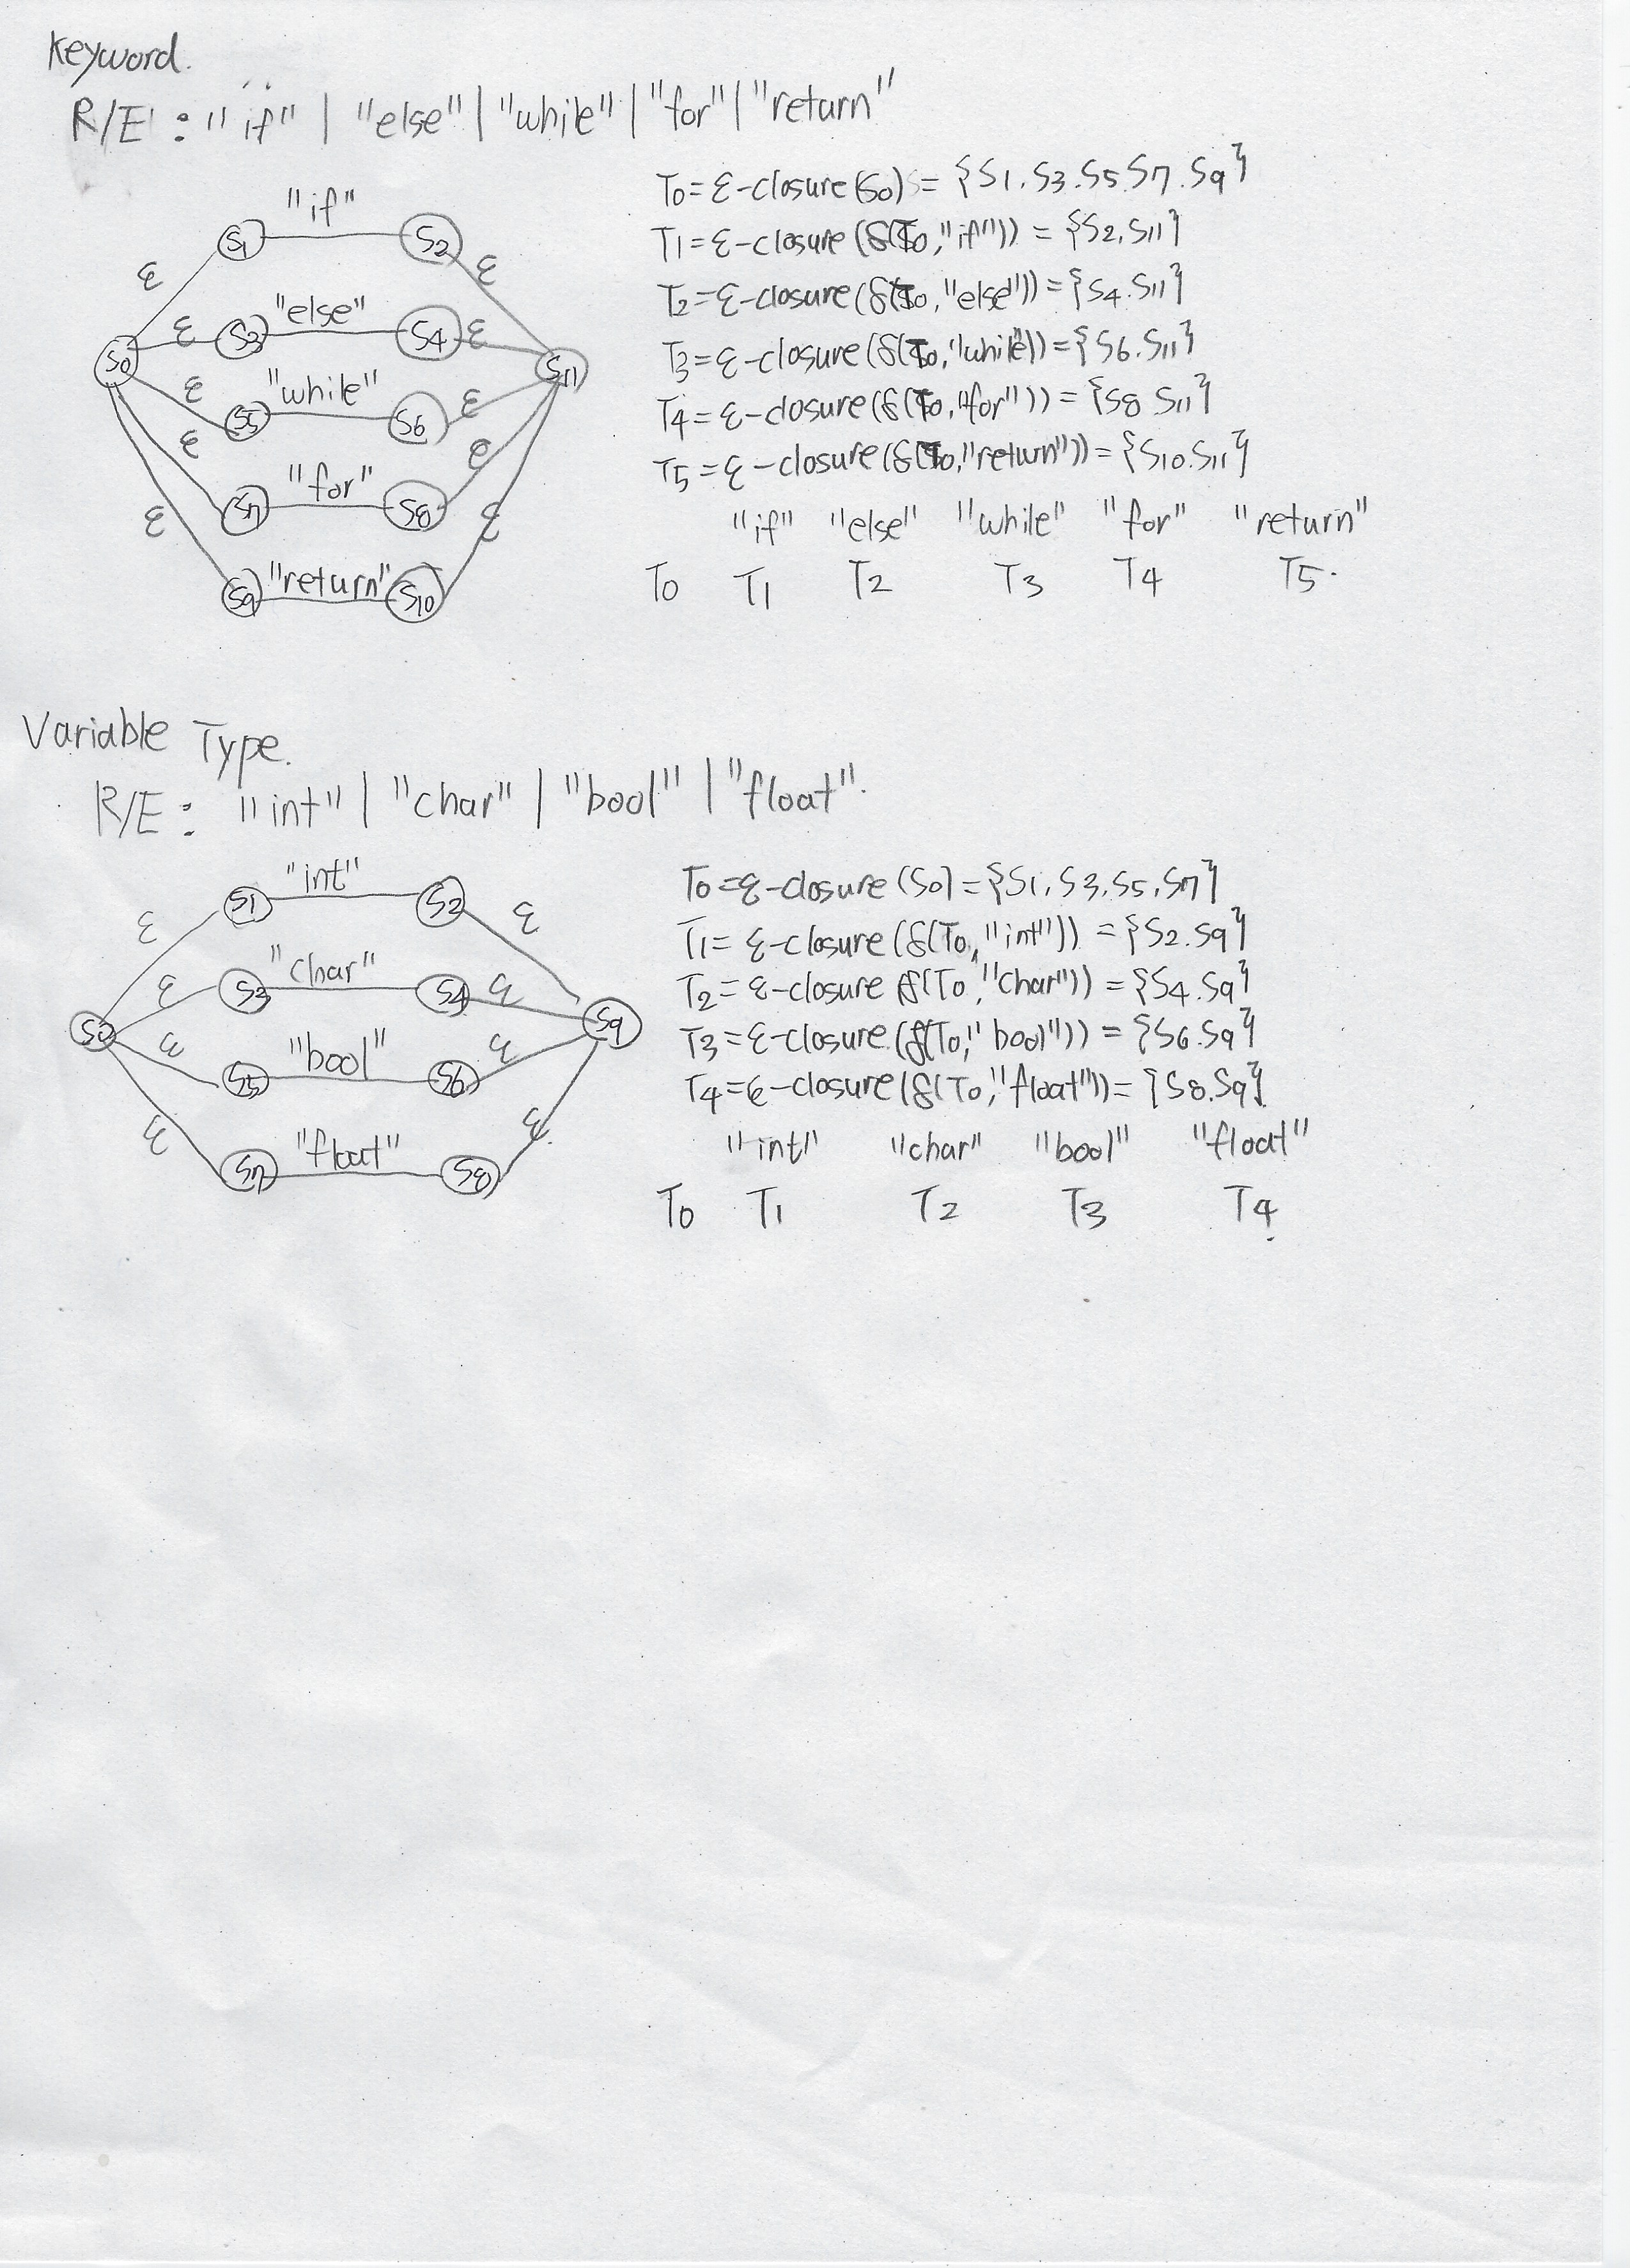 Keyword.
R/E : "if" | "else" | "while" | "for" | "return"
"if"
S1 S2
ε ε
"else"
ε S3 S4 ε
S0 S11
"while"
ε S5 S6 ε
ε "for" ε
S7 S8
ε ε
"return"
S9 S10
T0 = ε-closure(S0) = {S1. S3. S5. S7. S9}
T1 = ε-closure (δ(T0, "if")) = {S2, S11}
T2 = ε-closure (δ(T0, "else")) = {S4. S11}
T3 = ε-closure (δ(T0, "while")) = {S6. S11}
T4 = ε-closure (δ(T0, "for")) = {S8 S11}
T5 = ε-closure (δ(T0, "return")) = {S10. S11}
"if" "else" "while" "for" "return"
T0 T1 T2 T3 T4 T5.
Variable Type.
R/E : "int" | "char" | "bool" | "float".
"int"
S1 S2
ε ε
"char"
ε S3 S4 ε
S0 S9
ε "bool" ε
S5 S6
ε "float" ε
S7 S8
T0 = ε-closure (S0) = {S1, S3, S5, S7}
T1 = ε-closure (δ(T0, "int")) = {S2. S9}
T2 = ε-closure (δ(T0, "char")) = {S4. S9}
T3 = ε-closure. (δ(T0, "bool")) = {S6. S9}
T4 = ε-closure (δ(T0, "float")) = {S8. S9}
"int" "char" "bool" "float"
T0 T1 T2 T3 T4